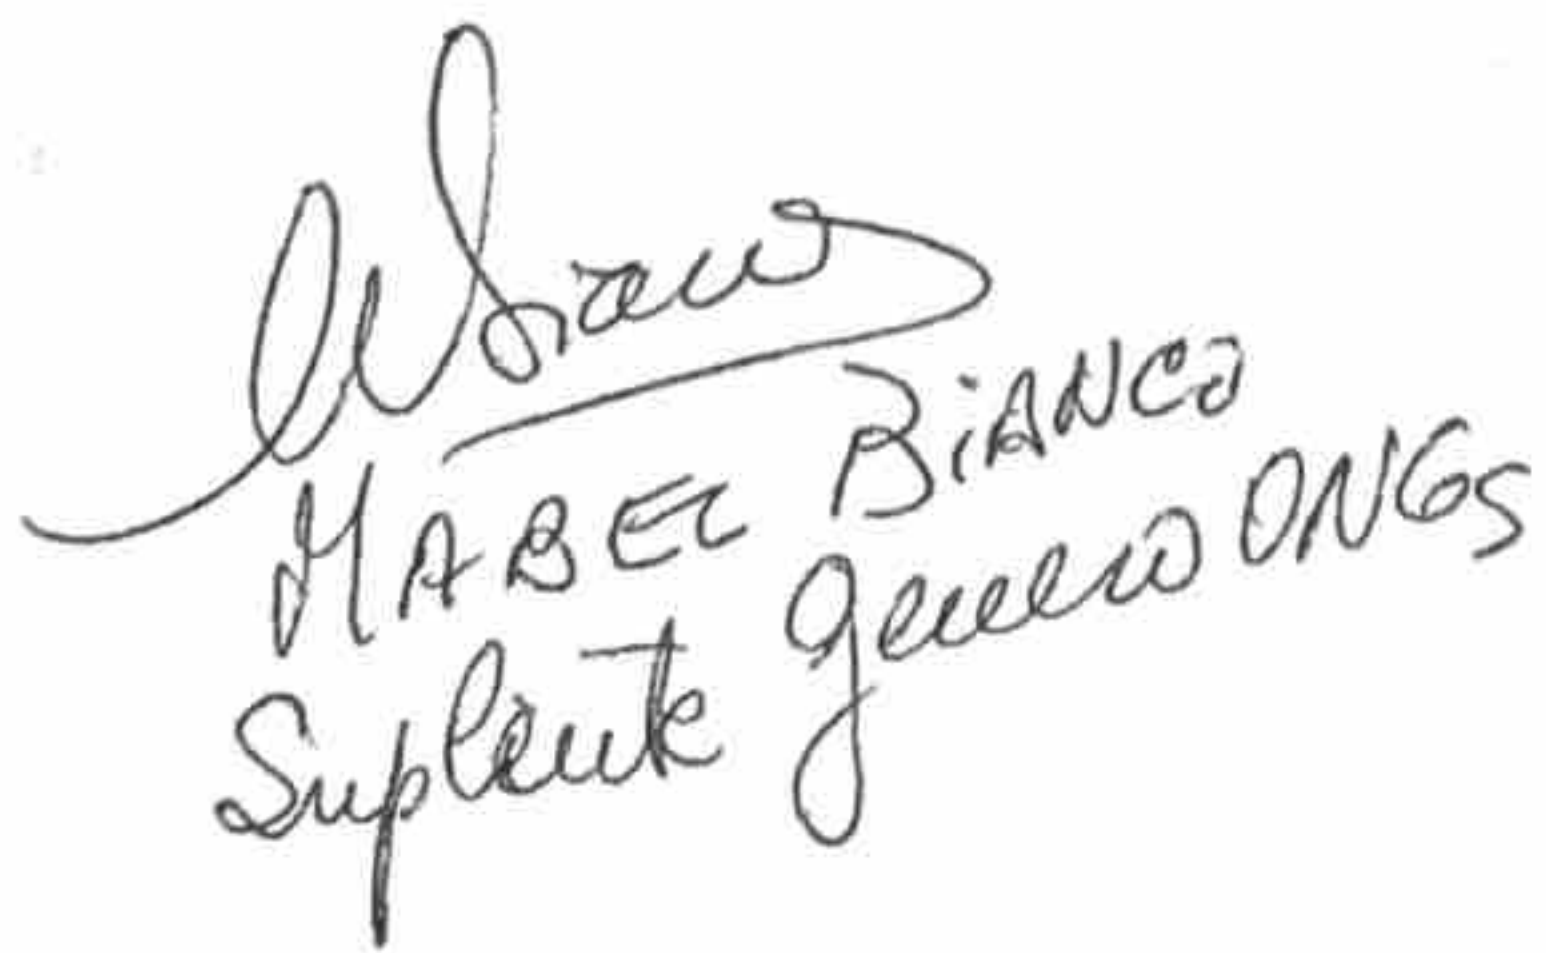 MABEL BiANCO
Suplente genero ONGs